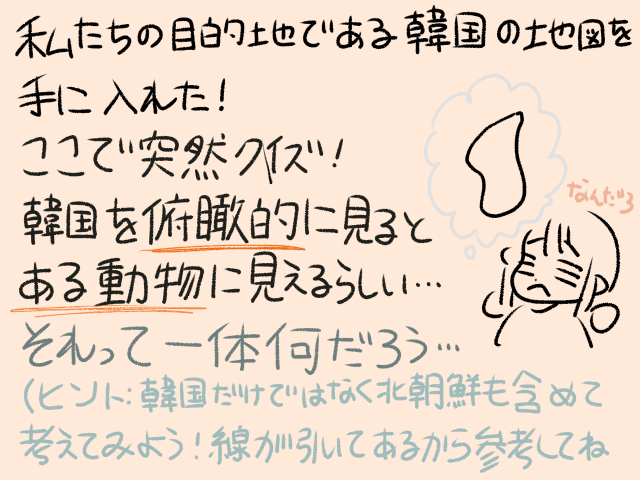 私たちの目的地である韓国の地図を
手に入れた!
ここで突然クイズ!
韓国を俯瞰的に見ると
ある動物に見えるらしい…
それって一体何だろう…
(ヒント:韓国だけではなく北朝鮮も含めて
考えてみよう!線が引いてあるから参考してね
なんだろ